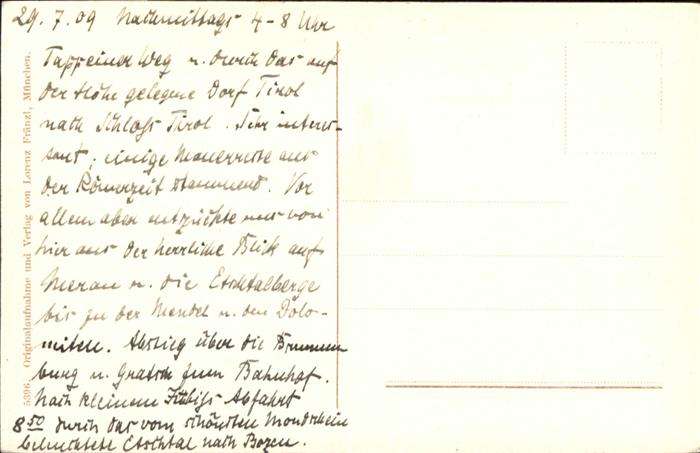 29. 7. 09 Nachmittags 4-8 Uhr
Tappeiner Weg u. durch das auf
der Höhe gelegene Dorf Tirol
nach Schloß Tirol. Sehr interes-
sant, einige Mauerreste aus
der Römerzeit stammend. Vor
allem aber entzückte uns von
hier aus der herrliche Blick auf
Meran u. die Etschtalberge
bis zu der Mendel u. den Dolo-
miten. Abstieg über die Brunnen
burg u. Gratsch zum Bahnhof.
Nach kleinem Imbiss Abfahrt
8 50 durch das vom schönsten Mondschein
beleuchtete Etschtal nach Bozen.
5396. Originalaufnahme und Verlag von Lorenz Fränzl, München.